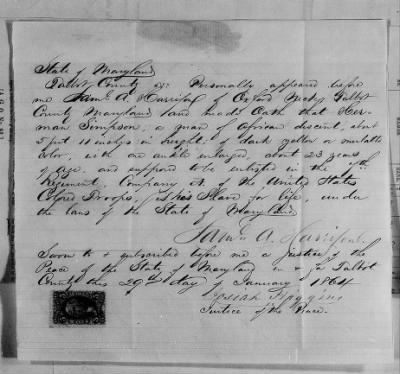 State of Maryland
Talbot County ss: Personally appeared before
me James A. Harrison of Oxford Neck, Talbot
County Maryland and made Oath that Her-
man Simpson, a man of African descent, about
5 feet 11 inches in height, of dark yellow or mulatto
color, with one ankle enlarged, about 23 years
of age, and supposed to be enlisted in the
Regiment, Company A, of the United States
Colored Troops, is his Slave for life, under
the laws of the State of Maryland
James A. Harrison
Sworn to & subscribed before me a Justice of the
Peace of the State of Maryland in & for Talbot
County this 29th day of January 1864
Josiah
Justice of the Peace.